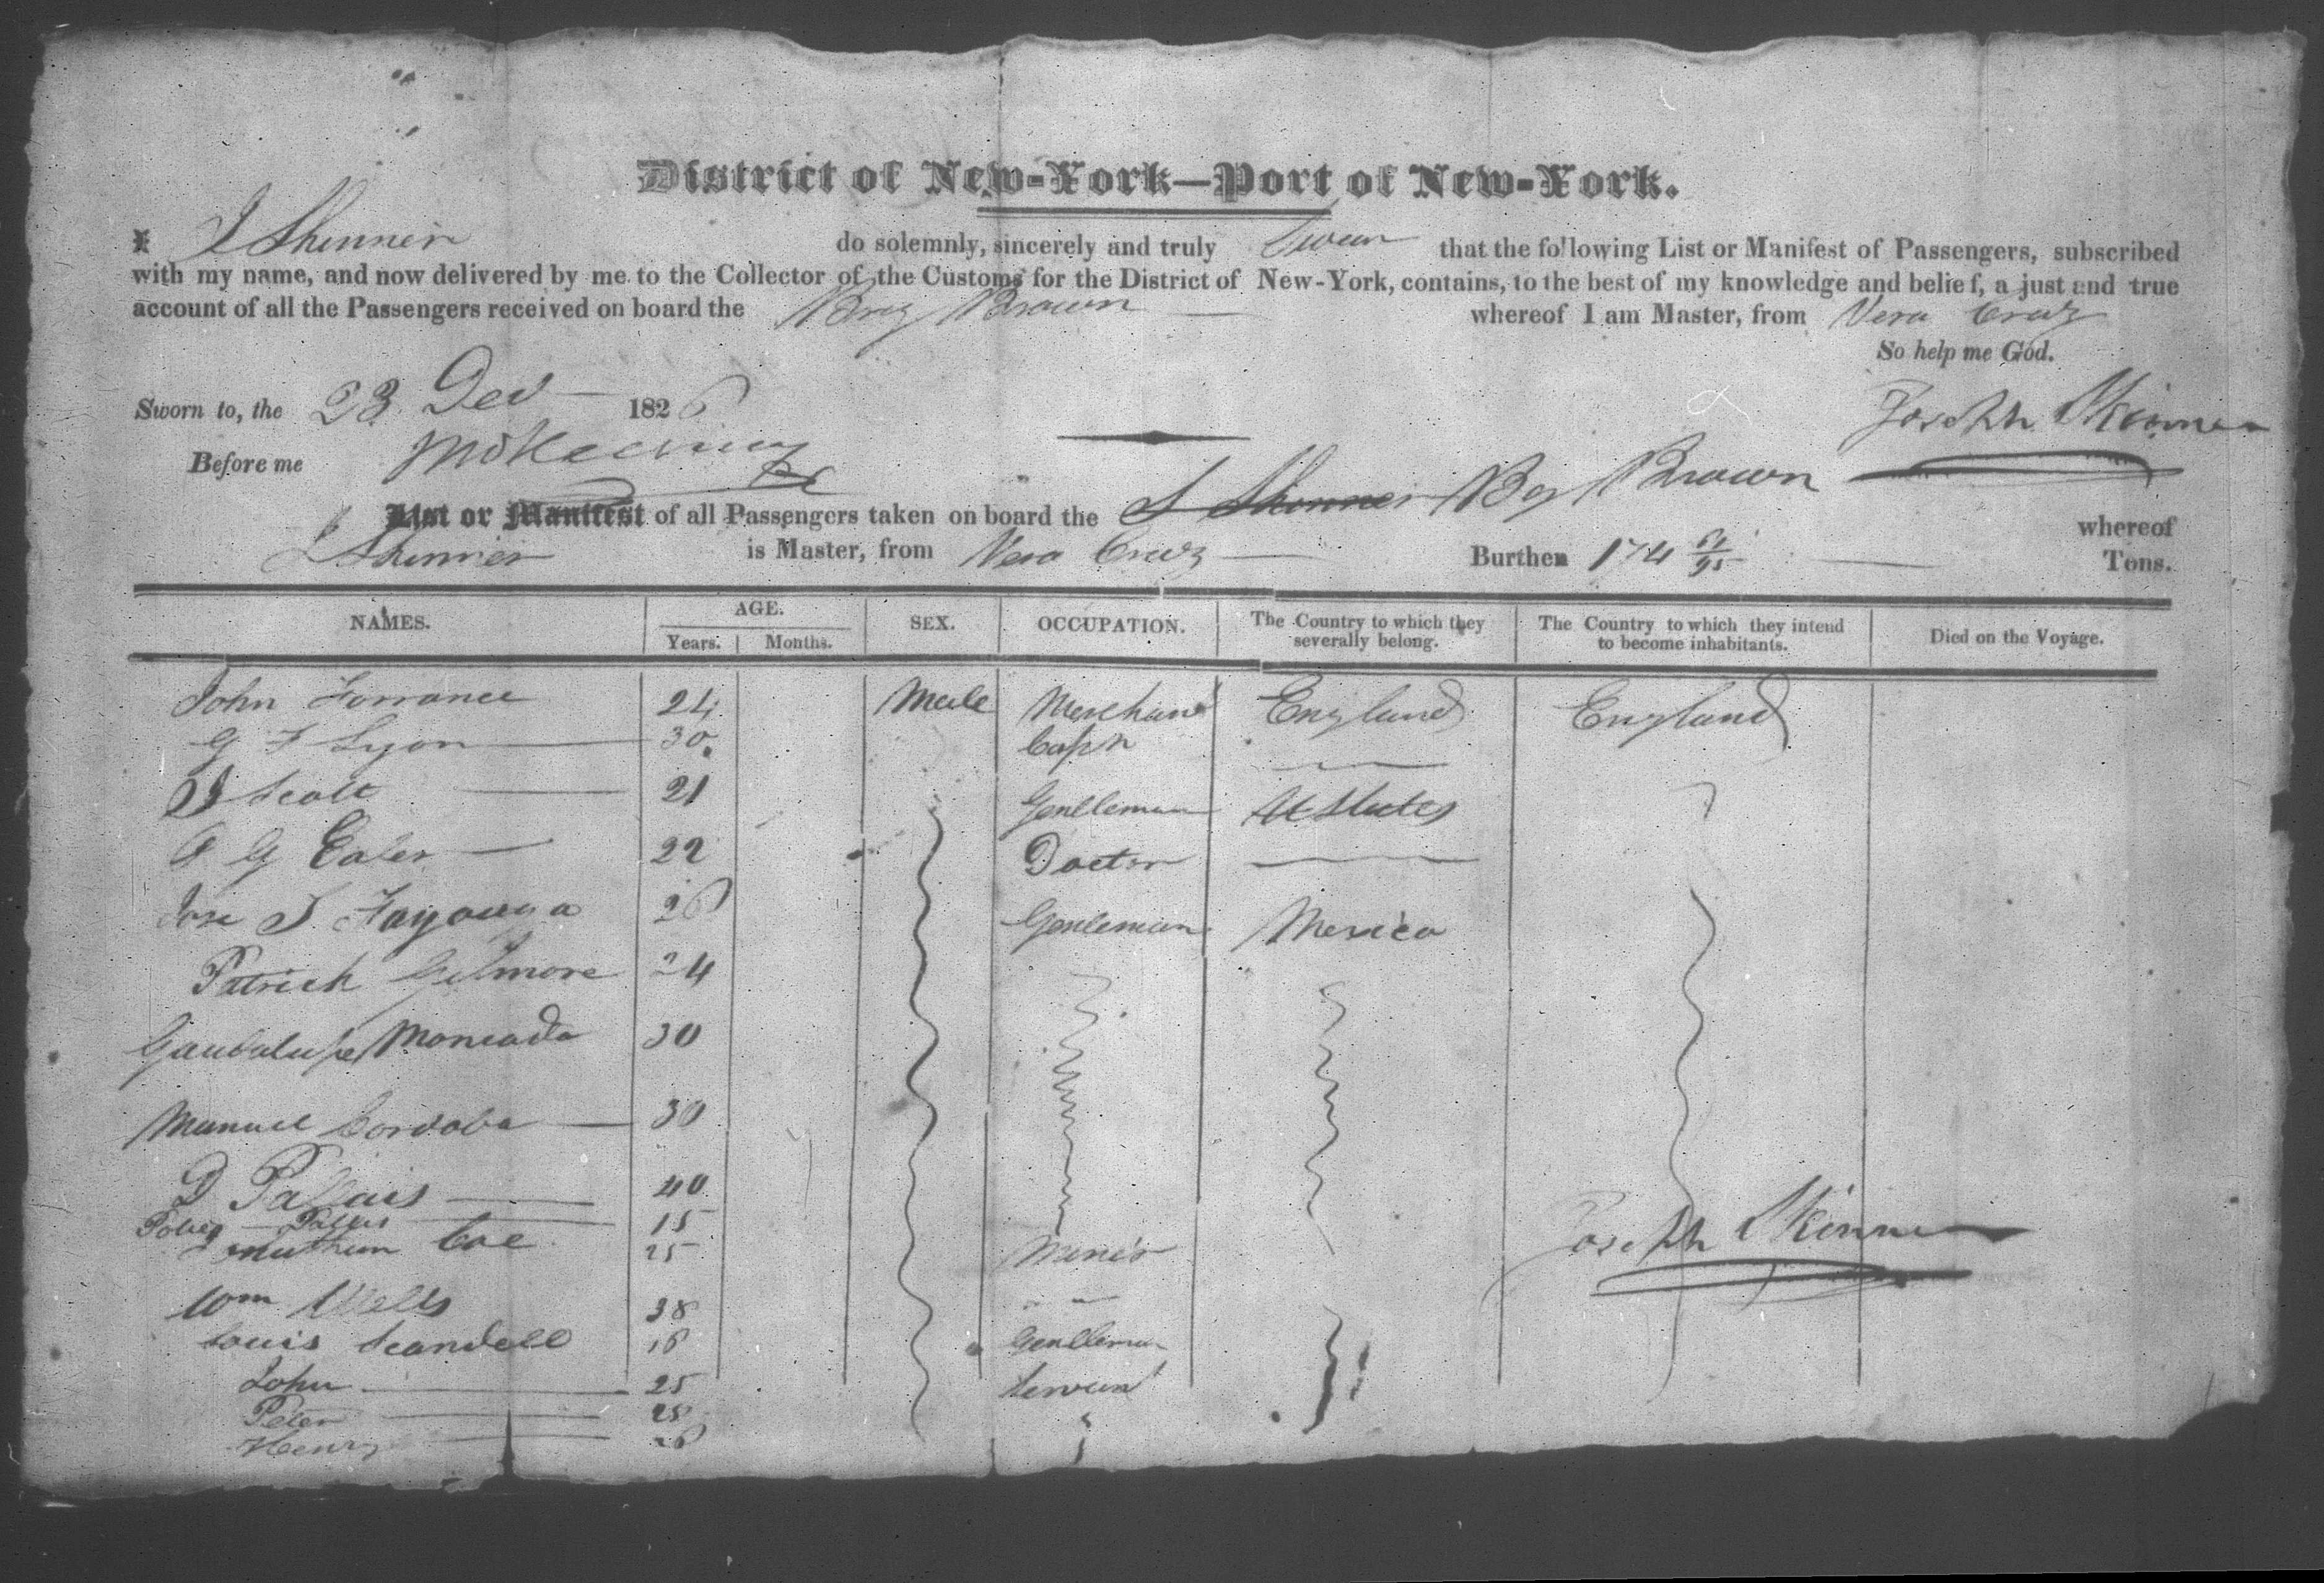 District of New-York—Port of New-York.
I J Skinner do solemnly, sincerely and truly Swear that the following List or Manifest of Passengers, subscribed
with my name, and now delivered by me to the Collector of the Customs for the District of New-York, contains, to the best of my knowledge and belief, a just and true
account of all the Passengers received on board the Brig Brown whereof I am Master, from Vera Cruz
So help me God.
Sworn to, the 23 Dec 1826
Joseph Skinner
Before me
List or Manifest of all Passengers taken on board the J Skinner Brg Brown whereof
J Skinner is Master, from Vera Cruz Burthen 174 Tons.
NAMES. AGE. SEX. OCCUPATION. The Country to which they severally belong. The Country to which they intend to become inhabitants. Died on the Voyage.
Years. Months.
John Torrance 24 Male Merchant England England
G F Lyon 30 Captn
J Scott 21 Gentleman U States
A G 22 Doctor
Jose 26 Gentleman Mexico
Patrick Gilmore 24
Gaudalupe Moncada 30
Manuel Cordoba 30
D Pallais 40
15
Coe 25 Miner
Joseph Skinner
Wm Wells 38
Louis Scandell 16 Gentleman
John 25 Servant
Peter 28
Henry 26